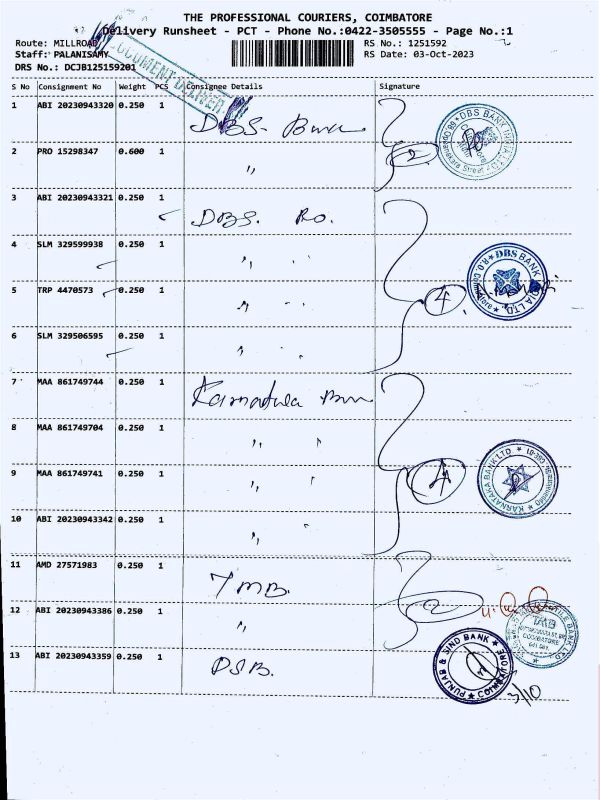 THE PROFESSIONAL COURIERS, COIMBATORE
Delivery Runsheet - PCT - Phone No.:0422-3505555 - Page No.:1
Route: MILLROAD RS No.: 1251592
Staff: PALANISAMY RS Date: 03-Oct-2023
DRS No.: DCJB125159201
DOCUMENT DELIVER
S No Consignment No Weight PCS Consignee Details Signature
1 ABI 20230943320 0.250 1 DBS- Bank
DBS BANK INDIA LTD.
2 PRO 15298347 0.600 1 " 2
3 ABI 20230943321 0.250 1 DBS. RO.
4 SLM 329599938 0.250 1 "
DBS BANK INDIA LTD. R.O. Coimbatore
5 TRP 4470573 0.250 1 " 4
6 SLM 329506595 0.250 1 "
7 MAA 861749744 0.250 1 Karnataka Bank
8 MAA 861749704 0.250 1 "
9 MAA 861749741 0.250 1 " 4
KARNATAKA BANK LTD.
10 ABI 20230943342 0.250 1 "
11 AMD 27571983 0.250 1 TMB.
12 ABI 20230943386 0.250 1 " 2
TMB
COIMBATORE
13 ABI 20230943359 0.250 1 PSB.
PUNJAB & SIND BANK COIMBATORE
3/10